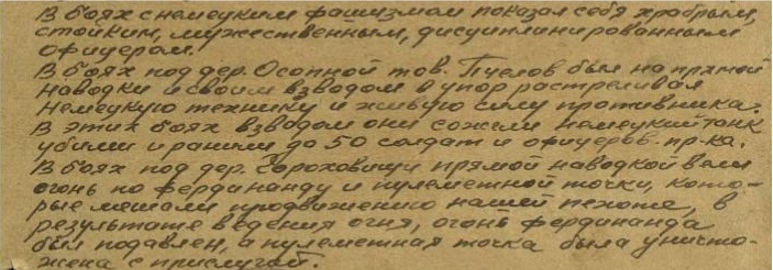 В боях с немецким фашизмом показал себя храбрым,
стойким, мужественным, дисциплинированным
офицером.
В боях под дер. Осопной тов. Пчелов был на прямой
наводки и своим взводом в упор растреливал
немецкую технику и живую силу противника.
В этих боях взводом они сожгли немецкий танк
убили и ранили до 50 солдат и офицеров пр-ка.
В боях под дер. Гороховищи прямой наводкой вели
огонь по фердинанду и пулеметной точки, кото-
рые мешали продвижению нашей пехоте, в
результате ведения огня, огонь фердинанда
был подавлен, а пулеметная точка была уничто-
жена с прислугой.